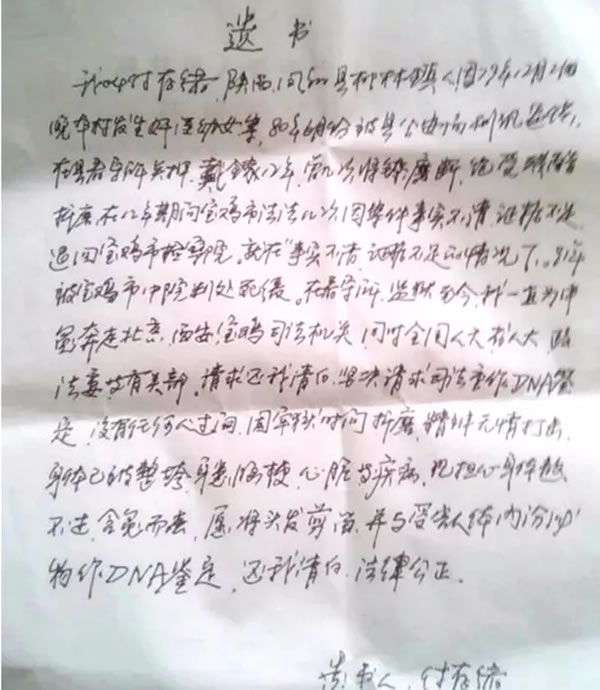 遗书
我叫付存绪，陕西凤翔县柳林镇人因79年12月21日
晚本村发生奸淫幼女案，80年6月份被县公安局刑讯逼供，
在县看守所关押，戴12年，磨断，饱受
折磨，在12年期间宝鸡市法院几次因案件事实不清，证据不足
退回宝鸡市检察院。就在"事实不清，证据不足的情况下。91年
被宝鸡市中院判处死缓。在看守所、监狱至今，我一直为申
冤奔走北京、西安、宝鸡司法机关，同时全国人大，省人大，政
法委等有关部，请求还我清白，坚决请求司法重作DNA鉴
定，没有任何人过问，因牢狱时间折磨，精神无情打击
身体已被整垮，身患脑梗，心脏等疾病，现担心身体熬
不过，含冤而去，愿将头发剪留，并与受害人体内分泌
物作DNA鉴定，还我清白，法律公正。
书人，付存绪